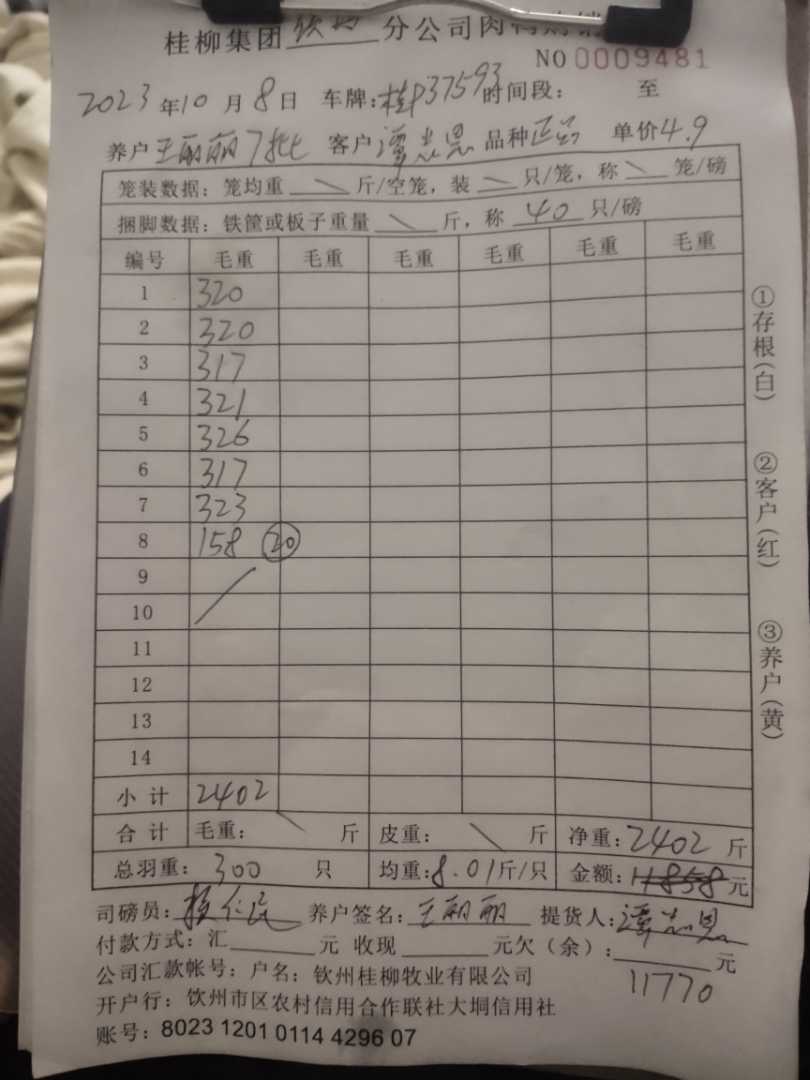 桂柳集团 钦州 分公司肉鸭购销
NO 0009481
2023年10月8日 车牌:桂P37593 时间段: 至
养户 王丽丽7批 客户 谭志恩 品种 正品 单价4.9
笼装数据: 笼均重 \ 斤/空笼, 装 \ 只/笼, 称 \ 笼/磅
捆脚数据: 铁筐或板子重量 \ 斤, 称 40 只/磅
编号 毛重 毛重 毛重 毛重 毛重 毛重
1 320
2 320
3 317
4 321
5 326
6 317
7 323
8 158 20
9
10
11
12
13
14
小计 2402
合计 毛重: \ 斤 皮重: \ 斤 净重: 2402 斤
总羽重: 300 只 均重: 8.01斤/只 金额: 11858元
司磅员: 养户签名: 王丽丽 提货人: 谭志恩
付款方式: 汇 元 收现 元欠(余): 元
11770
公司汇款帐号: 户名: 钦州桂柳牧业有限公司
开户行: 钦州市区农村信用合作联社大垌信用社
账号: 8023 1201 0114 4296 07
①存根(白)
②客户(红)
③养户(黄)